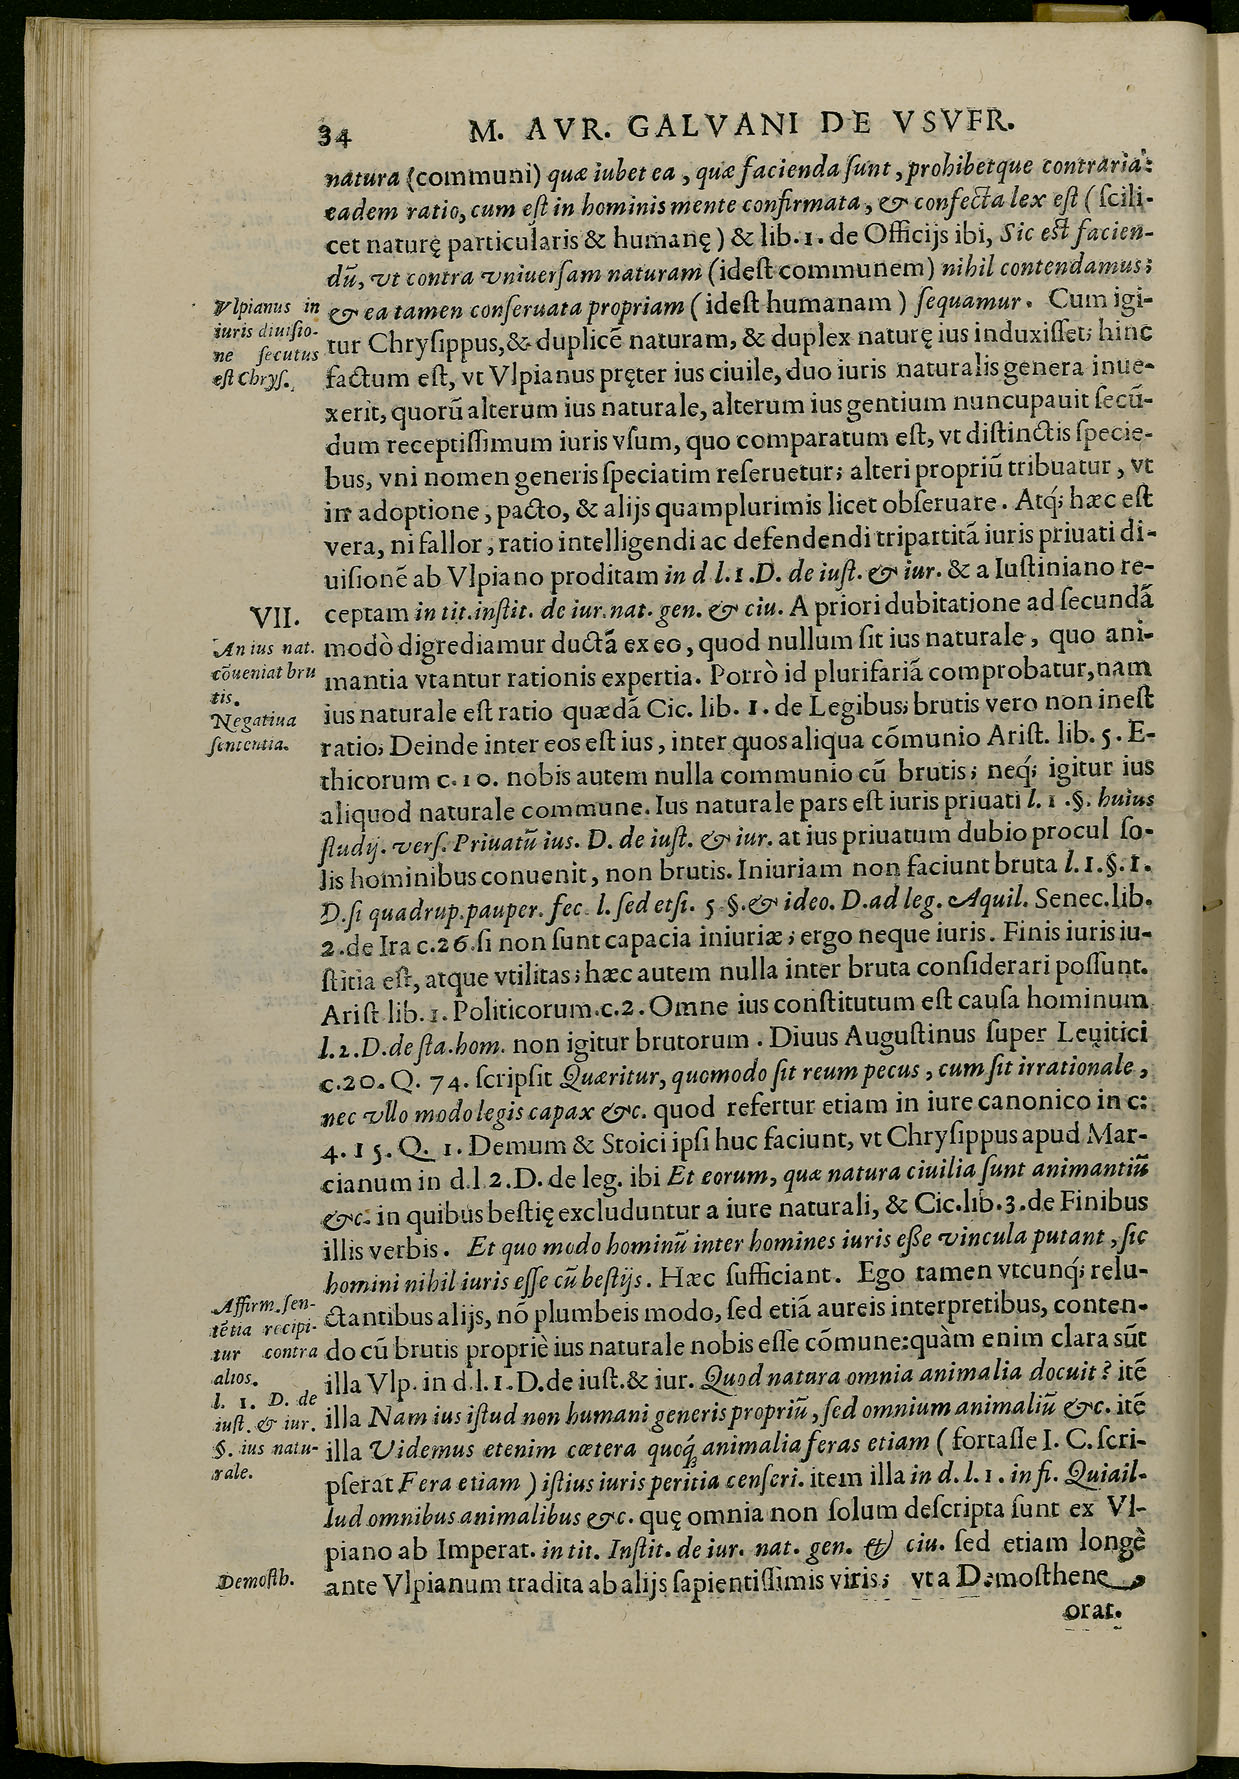 34 M. AVR. GALVANI DE VSVFR.
natura (communi) quæ iubet ea, quæ facienda ſunt, prohibetque contraria:
eadem ratio, cum eſt in hominis mente confirmata, & confecta lex eſt (ſcili-
cet naturę particularis & humanę) & lib. 1. de Officijs ibi, Sic eſt facien-
dũ, vt contra vniuerſam naturam (ideſt communem) nihil contendamus;
& ea tamen conſeruata propriam (ideſt humanam) ſequamur. Cum igi-
tur Chryſippus, & duplicẽ naturam, & duplex naturę ius induxiſſet; hinc
factum eſt, vt Vlpianus pręter ius ciuile, duo iuris naturalis genera inue-
xerit, quorũ alterum ius naturale, alterum ius gentium nuncupauit ſecũ-
dum receptiſſimum iuris vſum, quo comparatum eſt, vt diſtinctis ſpecie-
bus, vni nomen generis ſpeciatim reſeruetur; alteri propriũ tribuatur, vt
in adoptione, pacto, & alijs quamplurimis licet obſeruare. Atq́; hæc eſt
vera, ni fallor, ratio intelligendi ac defendendi tripartitã iuris priuati di-
uiſionẽ ab Vlpiano proditam in d l. 1. D. de iuſt. & iur. & a Iuſtiniano re-
ceptam in tit. inſtit. de iur. nat. gen. & ciu. A priori dubitatione ad ſecundã
modò digrediamur ductã ex eo, quod nullum ſit ius naturale, quo ani-
mantia vtantur rationis expertia. Porrò id plurifariã comprobatur, nam
ius naturale eſt ratio quædã Cic. lib. 1. de Legibus; brutis vero non ineſt
ratio; Deinde inter eos eſt ius, inter quos aliqua cõmunio Ariſt. lib. 5. E-
thicorum c. 10. nobis autem nulla communio cũ brutis; neq́; igitur ius
aliquod naturale commune. Ius naturale pars eſt iuris priuati l. 1. §. huius
ſtudij. verſ. Priuatũ ius. D. de iuſt. & iur. at ius priuatum dubio procul ſo-
lis hominibus conuenit, non brutis. Iniuriam non faciunt bruta l. 1. §. 1.
D. ſi quadrup. pauper. fec. l. ſed etſi. 5 §. & ideo. D. ad leg. Aquil. Senec. lib.
2. de Ira c. 26. ſi non ſunt capacia iniuriæ; ergo neque iuris. Finis iuris iu-
ſtitia eſt, atque vtilitas; hæc autem nulla inter bruta conſiderari poſſunt.
Ariſt lib. 1. Politicorum. c. 2. Omne ius conſtitutum eſt cauſa hominum
l. 2. D. de ſta. hom. non igitur brutorum. Diuus Auguſtinus ſuper Leuitici
c. 20. Q. 74. ſcripſit Quæritur, quomodo ſit reum pecus, cum ſit irrationale,
nec vllo modo legis capax &c. quod refertur etiam in iure canonico in c:
4. 15. Q. 1. Demum & Stoici ipſi huc faciunt, vt Chryſippus apud Mar-
cianum in d. l 2. D. de leg. ibi Et eorum, quæ natura ciuilia ſunt animantiũ
&c. in quibus beſtię excluduntur a iure naturali, & Cic. lib. 3. de Finibus
illis verbis. Et quo modo hominũ inter homines iuris eſſe vincula putant, ſic
homini nihil iuris eſſe cũ beſtijs. Hæc ſufficiant. Ego tamen vtcunq́; relu-
ctantibus alijs, nõ plumbeis modo, ſed etiã aureis interpretibus, conten-
do cũ brutis propriè ius naturale nobis eſſe cõmune: quàm enim clara sũt
illa Vlp. in d. l. 1. D. de iuſt. & iur. Quod natura omnia animalia docuit? itẽ
illa Nam ius iſtud non humani generis propriũ, ſed omnium animaliũ &c. itẽ
illa Videmus etenim cætera quoq; animalia feras etiam (fortaſſe I. C. ſcri-
pſerat Fera etiam) iſtius iuris peritia cenſeri. item illa in d. l. 1. in fi. Quia il-
lud omnibus animalibus &c. quę omnia non ſolum deſcripta ſunt ex Vl-
piano ab Imperat. in tit. Inſtit. de iur. nat. gen. & ciu. ſed etiam longè
ante Vlpianum tradita ab alijs ſapientiſſimis viris; vt a Demoſthene,
orat.
Vlpianus in
iuris diuiſio-
ne ſecutus
eſt Chryſ.
VII.
An ius nat.
cõueniat bru
tis.
Negatiua
ſententia.
Affirm. ſen-
tẽtia recipi-
tur contra
alios.
l. 1. D. de
iuſt. & iur.
§. ius natu-
rale.
Demoſth.